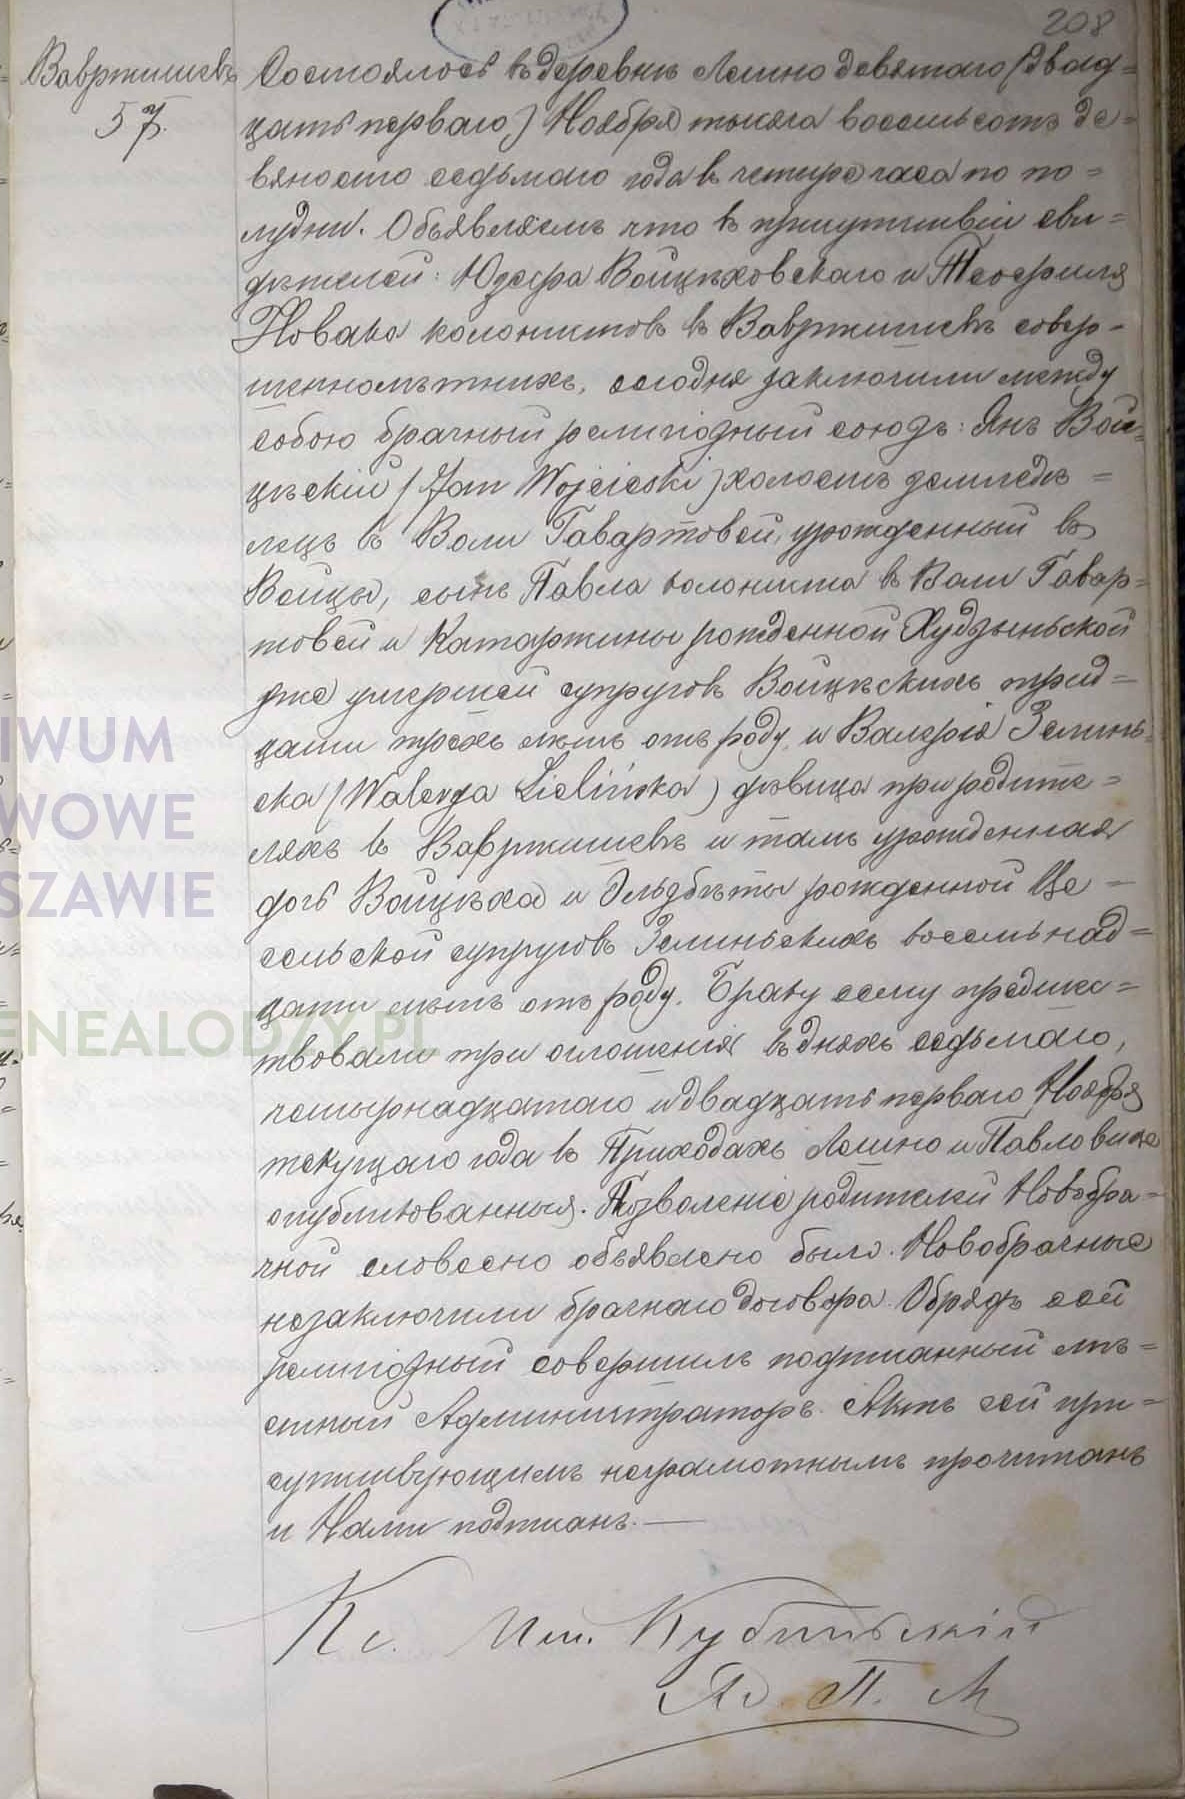 208
Вавржишевъ
57.
Состоялось въ деревнѣ Лешно девятаго /двад=
цать перваго/ Ноября тысяча восемьсотъ де=
вяносто седьмаго года въ четыре часа по по=
лудни. Объявляемъ что въ присутствіи сви=
дѣтелей: Юзефа Войцѣховскаго и Теофиля
Новака колонистовъ въ Вавржишевѣ совер=
шеннолѣтнихъ, сегодня заключили между
собою брачный религіозный союзъ: Янъ Вой=
цѣскій /Jan Wojcieski/ холостъ земледѣ=
лецъ въ Воли Гавартовой, урожденный въ
Войцы, сынъ Павла колониста въ Воли Гавар=
товой и Катаржины рожденной Худзыньской
уже умершей супруговъ Войцѣскихъ трид=
цати трехъ лѣтъ отъ роду, и Валерія Зелинь=
ска /Walerya Zielińska/ дѣвица при родите=
ляхъ въ Вавржишевѣ и тамъ урожденная
дочь Войцѣха и Эльзбѣты рожденной Це=
сельской супруговъ Зелиньскихъ восемьнад=
цати лѣтъ отъ роду. Браку сему предше=
твовали три оглошенія въ дняхъ седьмаго,
четырнадцатаго и двадцать перваго Ноября
текущаго года въ Приходахъ Лешно и Павловице
опубликованныя. Позволеніе родителей Новобра=
чной словесно объявлено было. Новобрачные
незаключили брачнаго договора. Обрядъ сей
религіозный совершилъ подписанный мѣ=
стный Администраторъ. Актъ сей при=
сутствующимъ неграмотнымъ прочитанъ
и Нами подписанъ.—
Кс.
Ад. П. Л
IWUM
WOWE
SZAWIE
ENEALODZY.PL